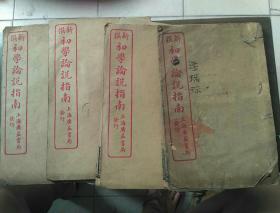 新撰
初學論說指南
上海廣益書局發行
新撰
初學論說指南
上海廣益書局發行
新撰
初學論說指南
上海廣益書局發行
新撰
初學論說指南
上海廣益書局發行